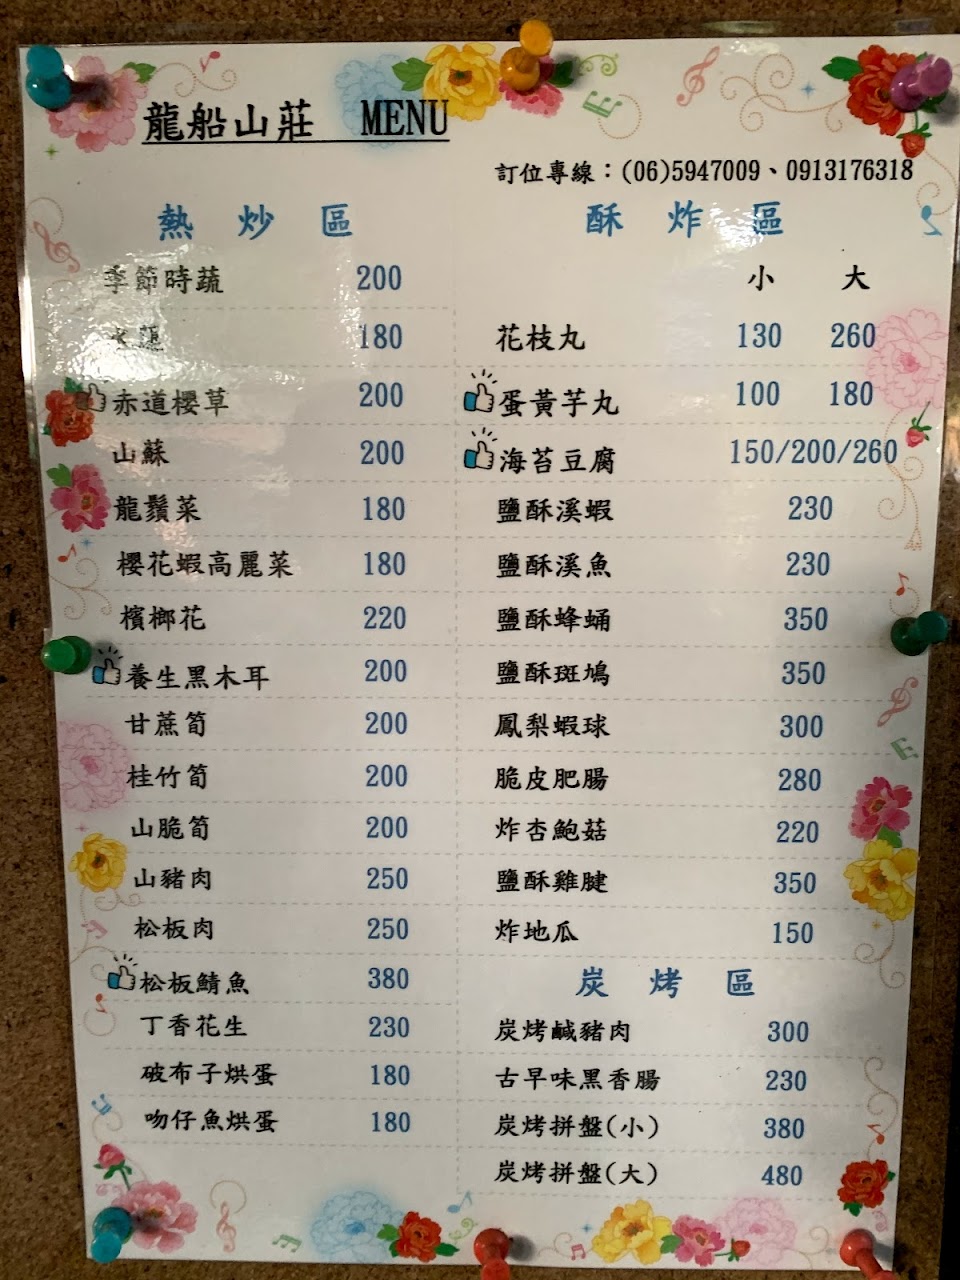 龍船山莊 MENU
訂位專線：(06)5947009、0913176318
熱炒區
季節時蔬 200
水蓮 180
赤道櫻草 200
山蘇 200
龍鬚菜 180
櫻花蝦高麗菜 180
檳榔花 220
養生黑木耳 200
甘蔗筍 200
桂竹筍 200
山脆筍 200
山豬肉 250
松板肉 250
松板鯖魚 380
丁香花生 230
破布子烘蛋 180
吻仔魚烘蛋 180
酥炸區
小 大
花枝丸 130 260
蛋黃芋丸 100 180
海苔豆腐 150/200/260
鹽酥溪蝦 230
鹽酥溪魚 230
鹽酥蜂蛹 350
鹽酥斑鳩 350
鳳梨蝦球 300
脆皮肥腸 280
炸杏鮑菇 220
鹽酥雞腱 350
炸地瓜 150
炭烤區
炭烤鹹豬肉 300
古早味黑香腸 230
炭烤拼盤(小) 380
炭烤拼盤(大) 480